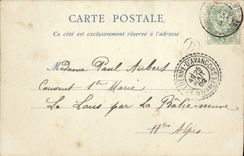 CARTE POSTALE
Ce côté est exclusivement réservé à l'adresse
Madame Paul Aubert
Couvent Ste Marie
Le Laus par la Bâtie-neuve
Htes Alpes